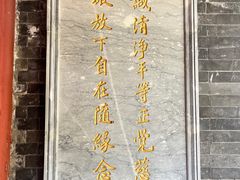 誠清淨平等正覺慈
破放下自在隨緣念